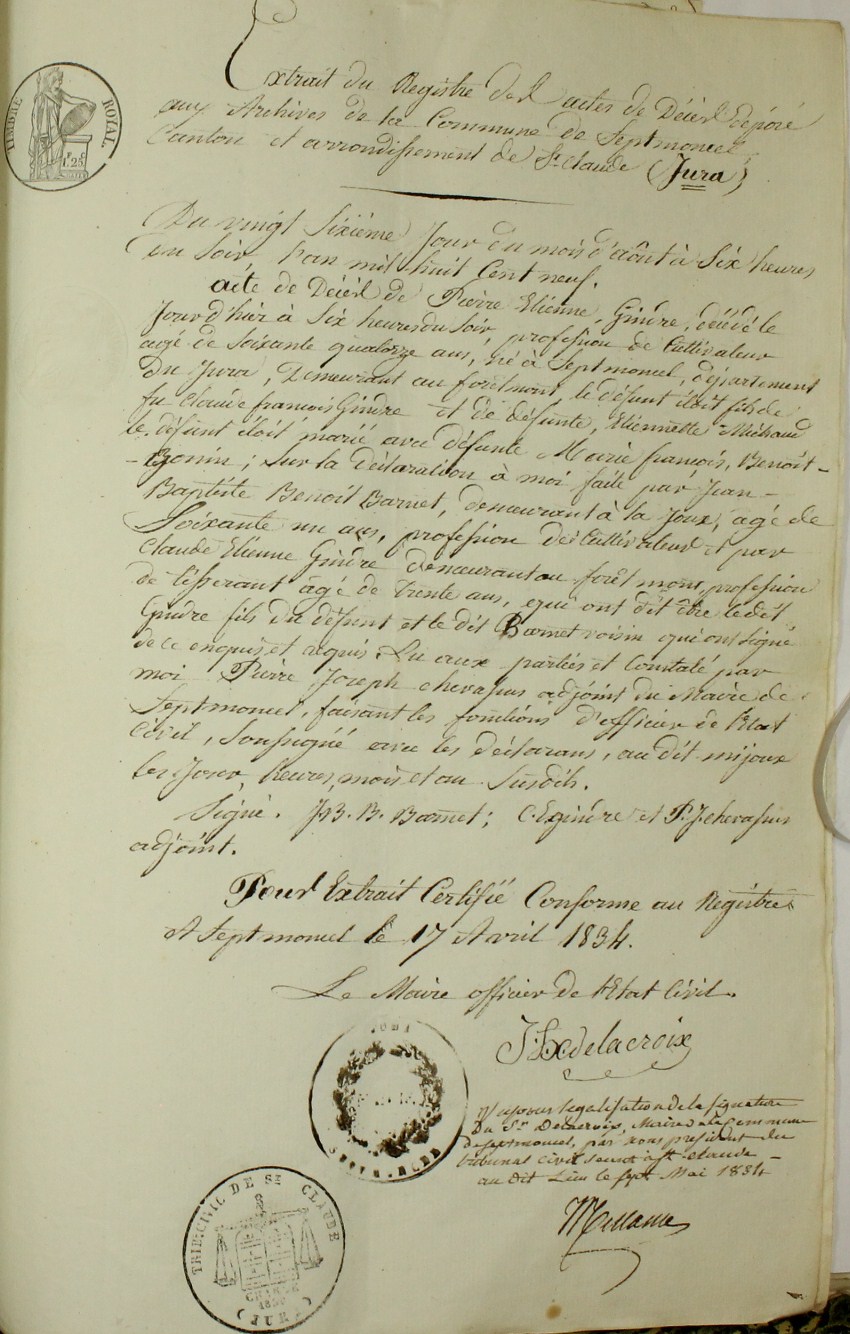 TIMBRE ROYAL
1F.25
Extrait du Registre des actes de Décès déposé
aux Archives de la Commune de Septmoncel,
Canton et arrondissement de St. Claude (Jura)
Du vingt Sixième Jour du mois d'août à Six heures
du Soir l'an mil huit Cent neuf.
acte de Décès de Pierre Etienne Gindre, décédé le
Jour d'hier à Six heures du Soir, profession de Cultivateur
agé de Soixante quatorze ans, né à Septmoncel, département
du Jura, Demeurant au forêtmont, le défunt étoit fils de
fu Claude françois Gindre et de défunte, Etiennette Michaud
le défunt étoit marié avec défunte Marie françois, Benoit-
-Gonin; Sur la déclaration à moi faite par Jean-
Baptiste Benoit Barnet, demeurant à la Joux, agé de
Soixante un ans, profession de Cultivateur et par
Claude Etienne Gindre demeurant au forêt mont, profession
de tisserant agé de trente ans, qui ont dit être ledit
Gindre fils du défunt et le dit Barnet voisin qui ont Signé
de ce enquis et requis. Lu aux parties et Constaté par
moi Pierre Joseph chevassus adjoint du Maire de
Septmoncel, faisant les fonctions d'officier de l'Etat
Civil, Soussigné avec les déclarans, au dit mijoux
les Jour, heures, mois et an Susdits.
Signé. J.B. B. Barnet; C.E gindre et P.J. chevassus
adjoint.
Pour Extrait Certifié Conforme au Registre
A Septmoncel le 17 Avril 1834.
Le Maire officier de l'Etat Civil.
J. Lx delacroix
Vu pour legalisation de la signature
Du Sr. Delacroix, Maire de la Commune
de septmoncel, par nous president du
tribunal Civil seant à st claude -
au dit Lieu le sept Mai 1834
TRIB. CIVIL DE ST. CLAUDE
CHARTE
1830
(JURA)